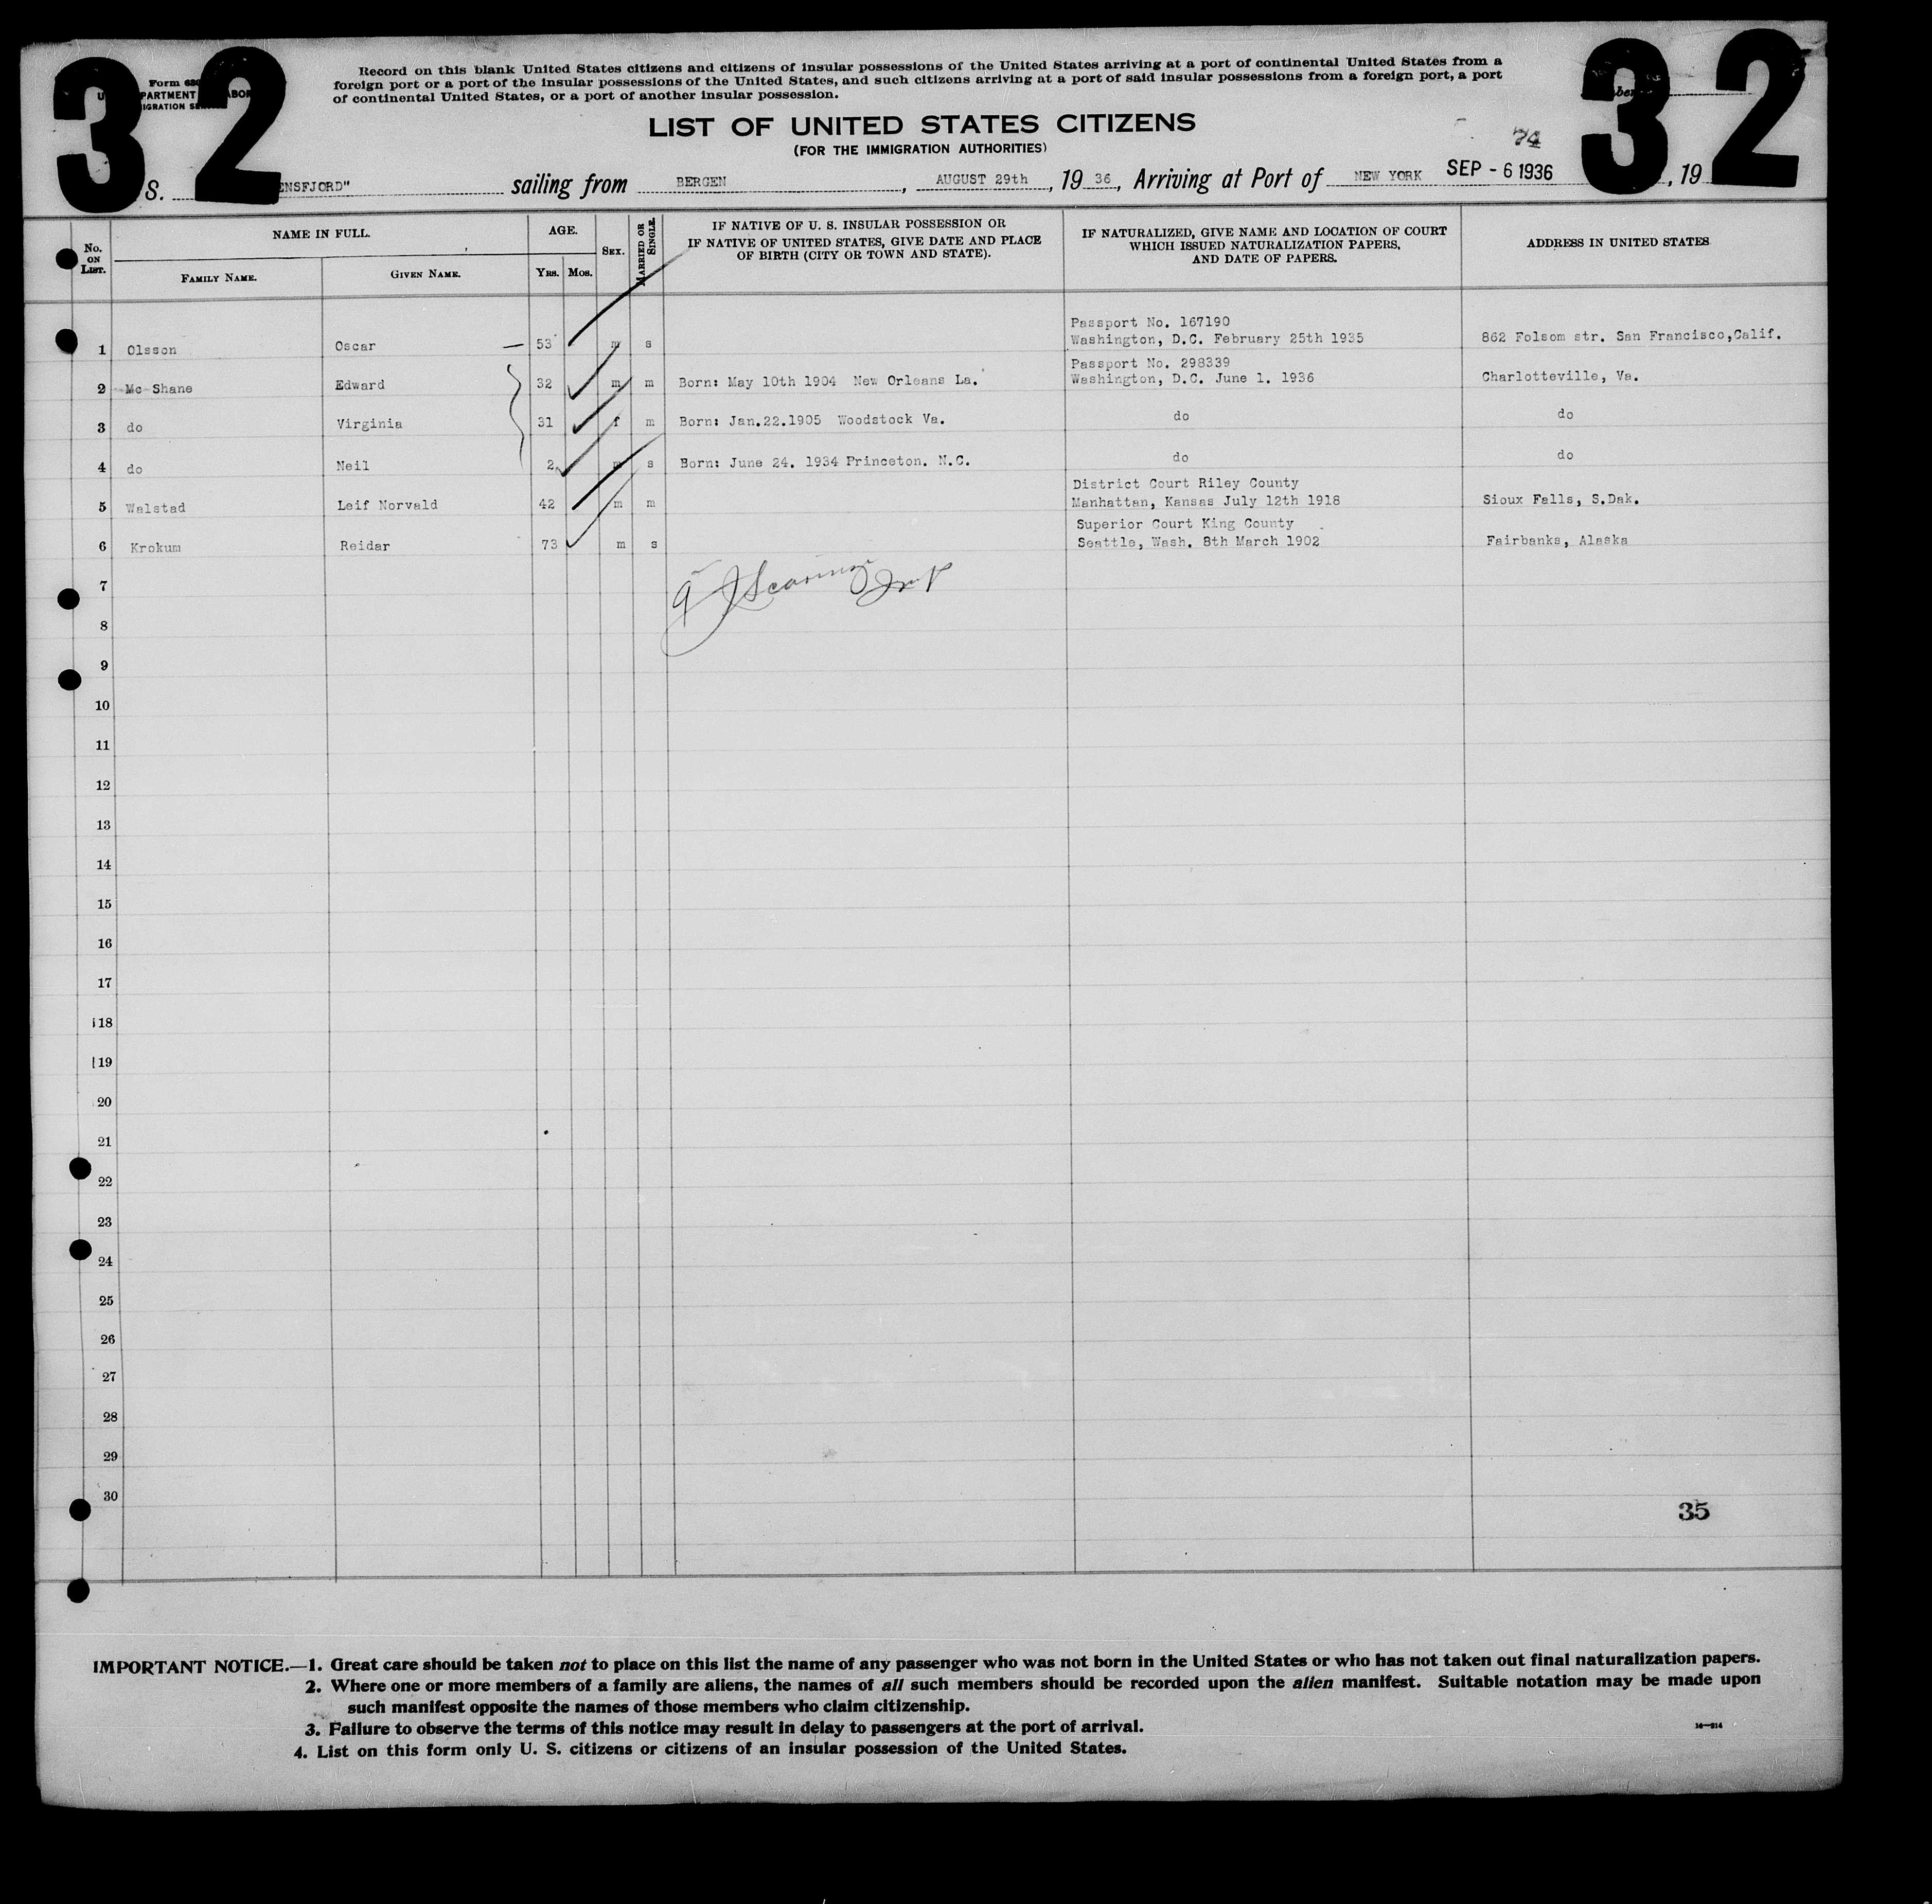 32
32
Form 68
U PARTMENT ABOR
IGRATION SE
Record on this blank United States citizens and citizens of insular possessions of the United States arriving at a port of continental United States from a
foreign port or a port of the insular possessions of the United States, and such citizens arriving at a port of said insular possessions from a foreign port, a port
of continental United States, or a port of another insular possession.
LIST OF UNITED STATES CITIZENS
(FOR THE IMMIGRATION AUTHORITIES)
74
S. ENSFJORD" sailing from BERGEN, AUGUST 29th, 1936, Arriving at Port of NEW YORK SEP - 6 1936, 19
No. ON LIST.
NAME IN FULL.
FAMILY NAME.
GIVEN NAME.
AGE.
YRS. MOS.
SEX.
MARRIED OR SINGLE.
IF NATIVE OF U. S. INSULAR POSSESSION OR
IF NATIVE OF UNITED STATES, GIVE DATE AND PLACE
OF BIRTH (CITY OR TOWN AND STATE).
IF NATURALIZED, GIVE NAME AND LOCATION OF COURT
WHICH ISSUED NATURALIZATION PAPERS,
AND DATE OF PAPERS.
ADDRESS IN UNITED STATES
Passport No. 167190
1 Olsson Oscar 53 m s Washington, D.C. February 25th 1935 862 Folsom str. San Francisco,Calif.
Passport No. 298339
2 Mc Shane Edward 32 m m Born: May 10th 1904 New Orleans La. Washington, D.C. June 1. 1936 Charlotteville, Va.
3 do Virginia 31 f m Born: Jan.22.1905 Woodstock Va. do do
4 do Neil 2 m s Born: June 24. 1934 Princeton. N.C. do do
District Court Riley County
5 Walstad Leif Norvald 42 m m Manhattan, Kansas July 12th 1918 Sioux Falls, S.Dak.
Superior Court King County
6 Krokum Reidar 73 m s Seattle, Wash. 8th March 1902 Fairbanks, Alaska
7
8
9
10
11
12
13
14
15
16
17
18
19
20
21
22
23
24
25
26
27
28
29
30
35
IMPORTANT NOTICE.—1. Great care should be taken not to place on this list the name of any passenger who was not born in the United States or who has not taken out final naturalization papers.
2. Where one or more members of a family are aliens, the names of all such members should be recorded upon the alien manifest. Suitable notation may be made upon
such manifest opposite the names of those members who claim citizenship.
3. Failure to observe the terms of this notice may result in delay to passengers at the port of arrival.
14—214
4. List on this form only U. S. citizens or citizens of an insular possession of the United States.